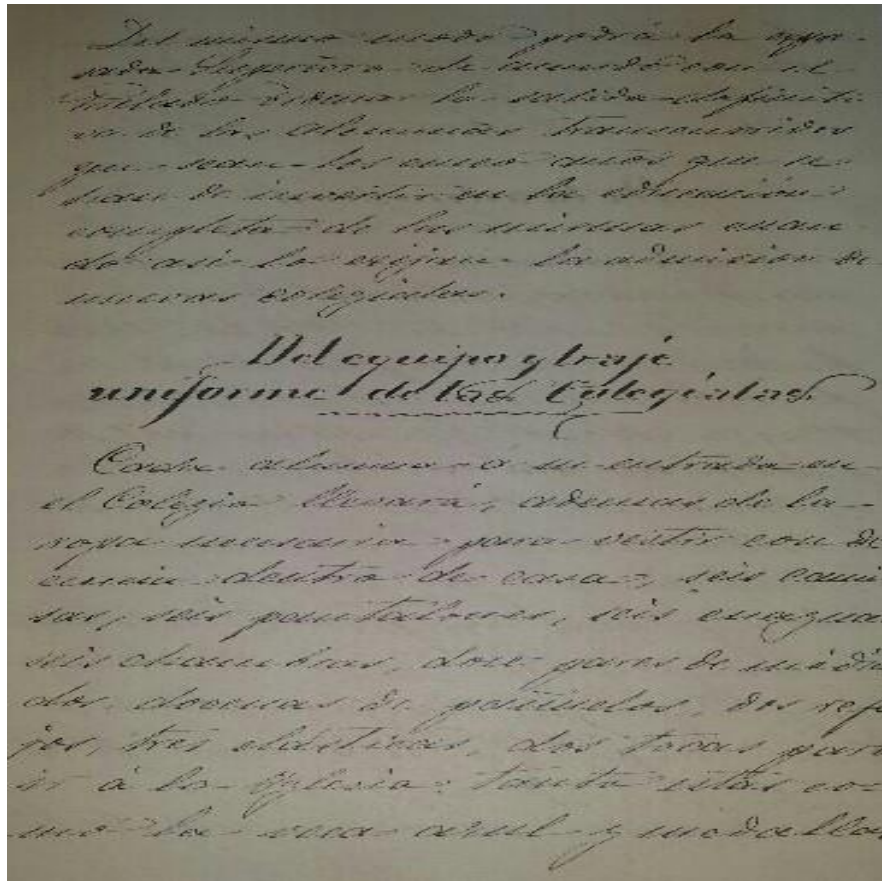 Del mismo modo podrá la expre-
sada Superiora de acuerdo con el
Prelado ordenar la salida definiti-
va de las alumnas transcurridos
que sean los cinco años que se
han de invertir en la educación
completa de las mismas cuan
do asi lo exijan la admision de
nuevas colegialas.
Del equipo y traje
uniforme de las Colegialas
Cada alumna á su entrada en
el Colegio llevará, ademas de la
ropa necesaria para vestir con de
cencia dentro de casa, seis cami
sas, seis pantalones, seis enagua
seis chambras, doce pares de media
dos docenas de pañuelos, dos refa
jos, tres elásticas, dos tocas para
ir á la Iglesia: tanto estas co-
mo la beca azul y medallas